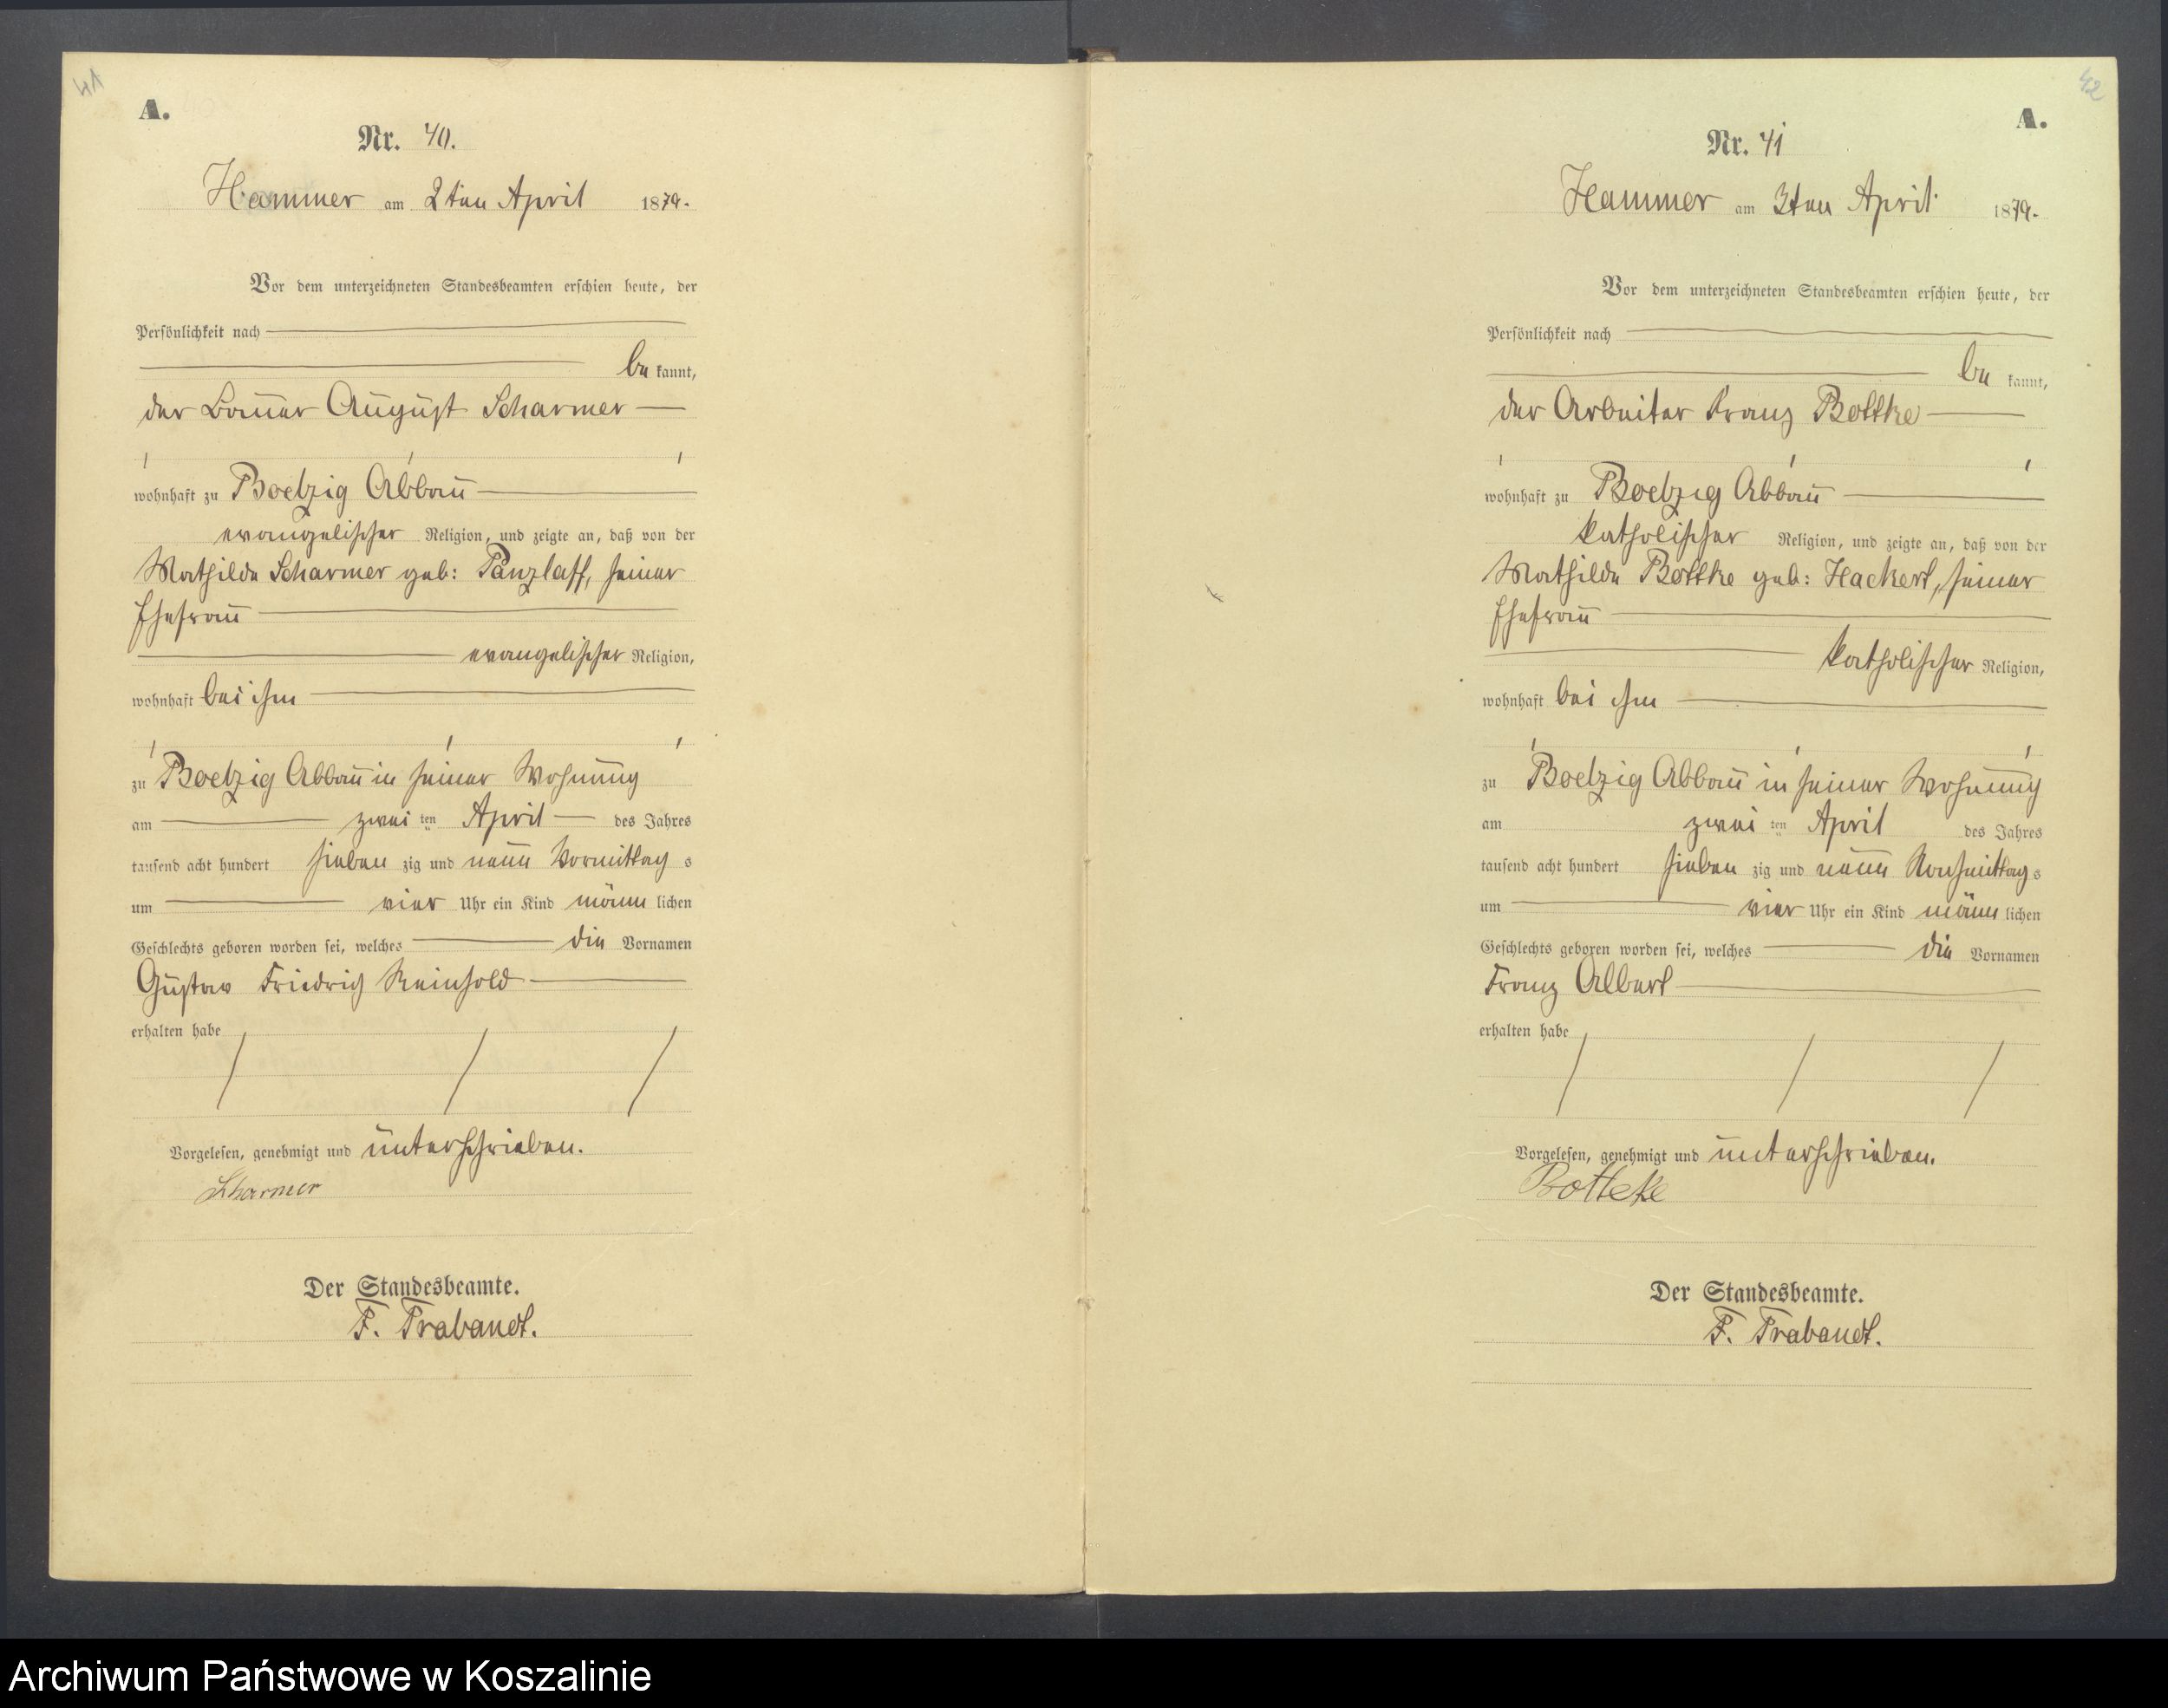 41
A.
Nr. 40.
Hammer am 2ten April 1879.
Vor dem unterzeichneten Standesbeamten erschien heute, der
Persönlichkeit nach
be kannt,
der Bauer August Scharmer
wohnhaft zu Boelzig Abbau
evangelischer Religion, und zeigte an, daß von der
Mathilde Scharmer geb: Panzlaff, seiner
Ehefrau
evangelischer Religion,
wohnhaft bei ihm
zu Boelzig Abbau in seiner Wohnung
am zwei ten April des Jahres
tausend acht hundert sieben zig und neun Vormittag s
um vier Uhr ein Kind männ lichen
Geschlechts geboren worden sei, welches die Vornamen
Gustav Friedrich Reinhold
erhalten habe
Vorgelesen, genehmigt und unterschrieben.
Scharmer
Der Standesbeamte.
F. Trabandt.
42
A.
Nr. 41
Hammer am 3ten April 1879.
Vor dem unterzeichneten Standesbeamten erschien heute, der
Persönlichkeit nach
be kannt,
der Arbeiter Franz Bottke
wohnhaft zu Boelzig Abbau
katholischer Religion, und zeigte an, daß von der
Mathilde Bottke geb: Hackert, seiner
Ehefrau
katholischer Religion,
wohnhaft bei ihm
zu Boelzig Abbau in seiner Wohnung
am zwei ten April des Jahres
tausend acht hundert sieben zig und neun Nachmittag s
um vier Uhr ein Kind männ lichen
Geschlechts geboren worden sei, welches die Vornamen
Franz Albert
erhalten habe
Vorgelesen, genehmigt und unterschrieben.
Botteke
Der Standesbeamte.
F. Trabandt.
Archiwum Państwowe w Koszalinie